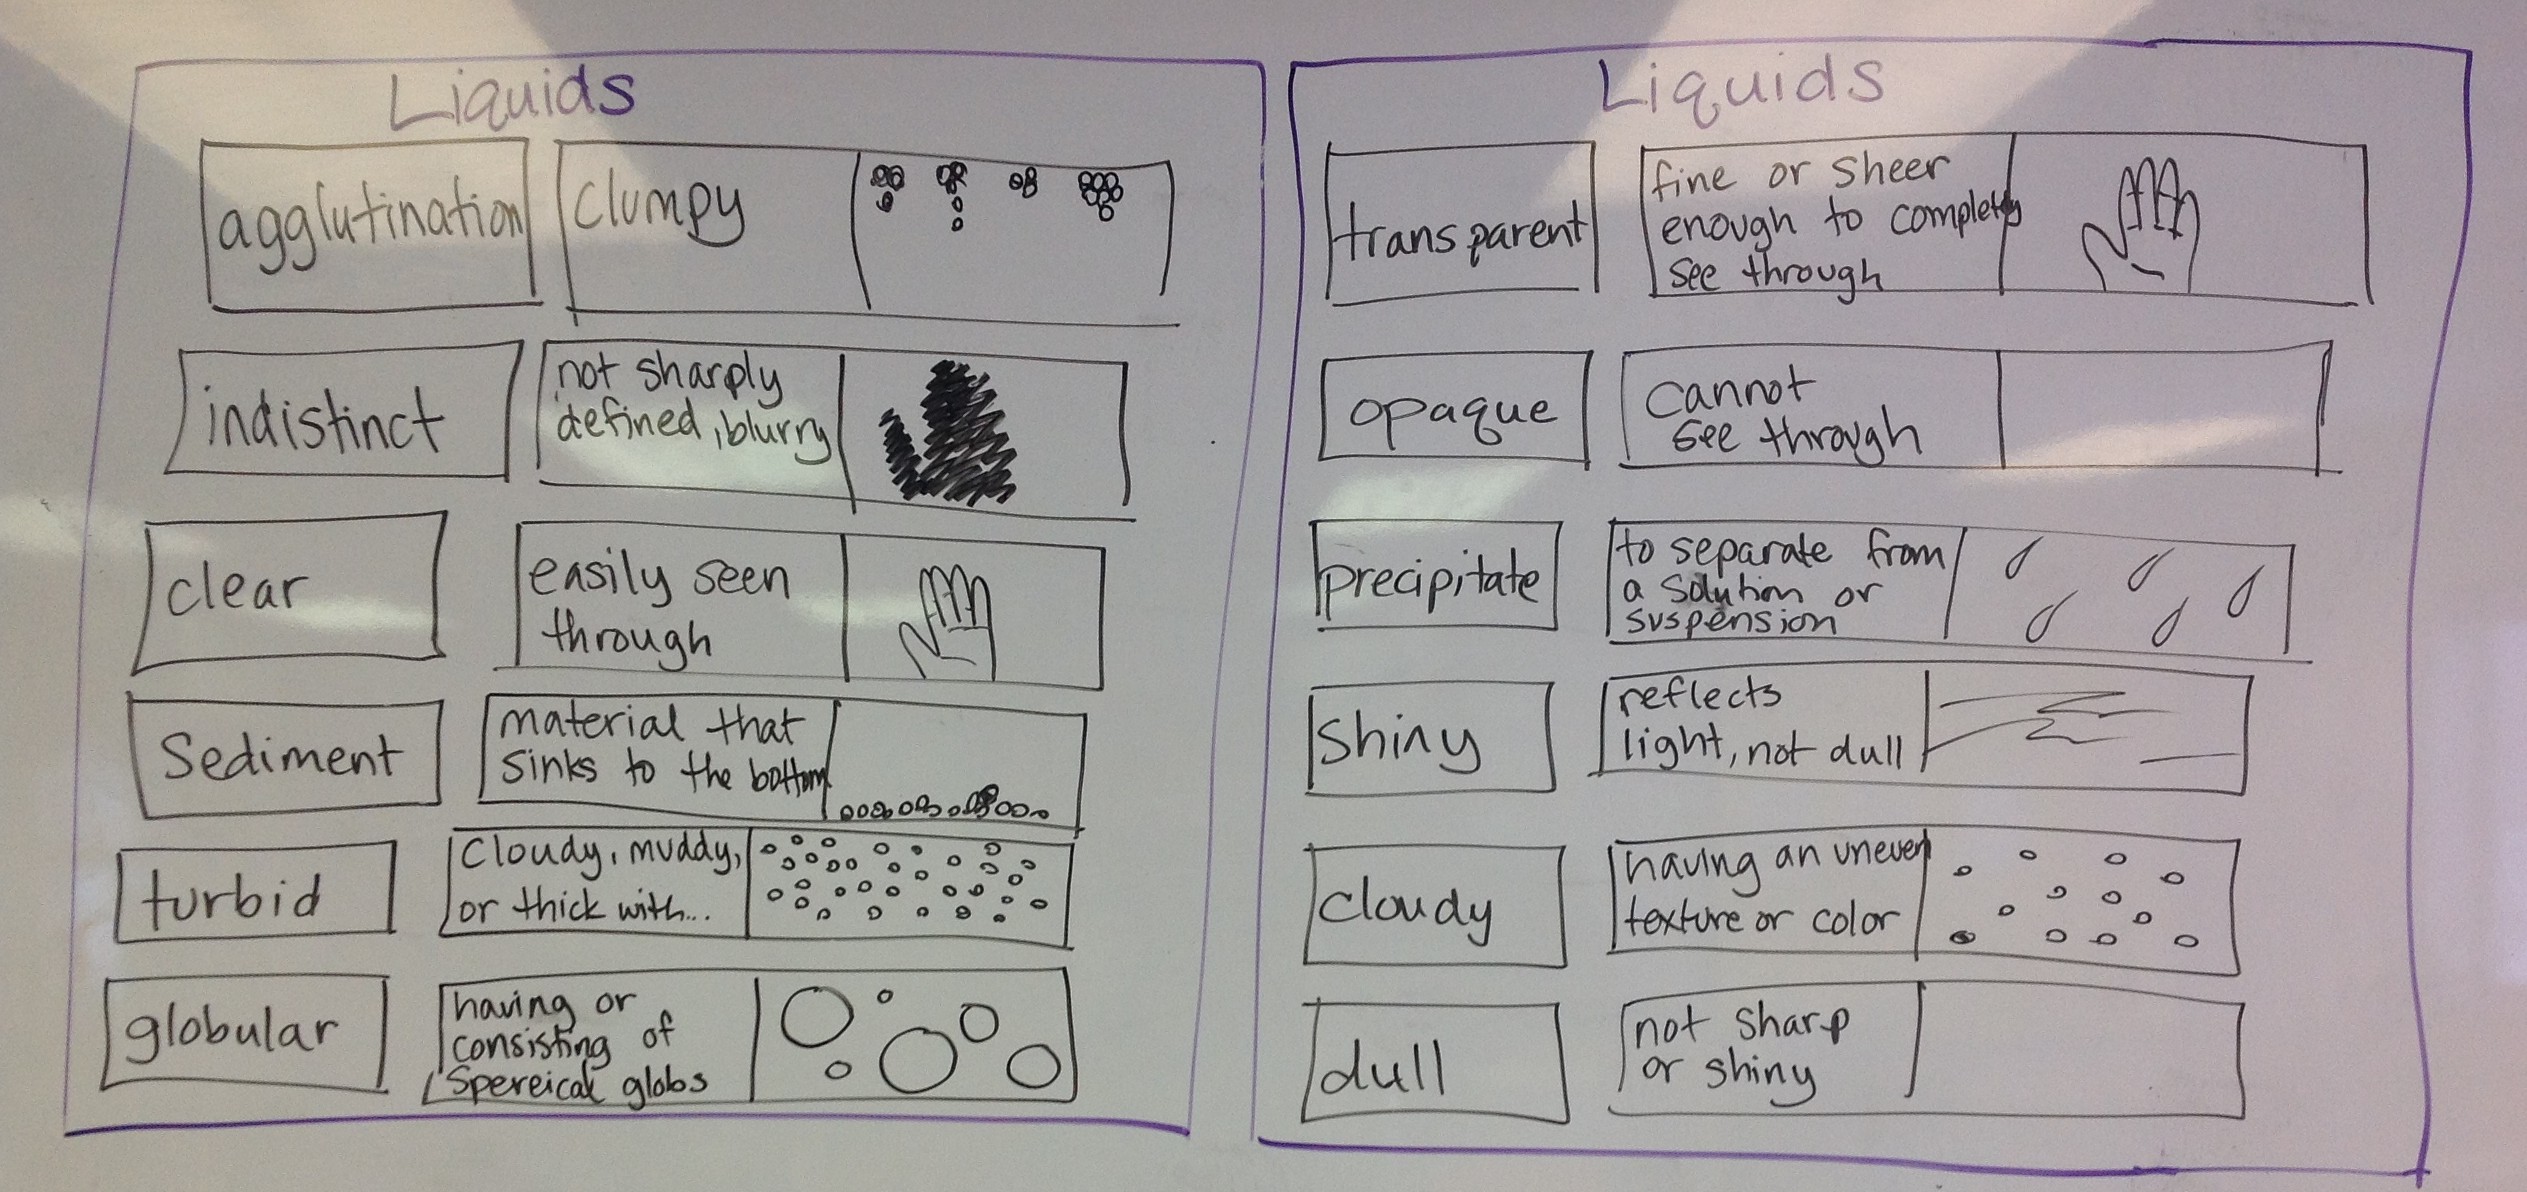 Liquids
agglutination
Clumpy
indistinct
not sharply
defined, blurry
clear
easily seen
through
Sediment
material that
sinks to the bottom
turbid
Cloudy, muddy,
or thick with...
globular
having or
consisting of
Spereical globs
Liquids
transparent
fine or sheer
enough to completely
see through
opaque
cannot
see through
precipitate
to separate from
a solution or
suspension
Shiny
reflects
light, not dull
cloudy
having an uneven
texture or color
dull
not sharp
or shiny